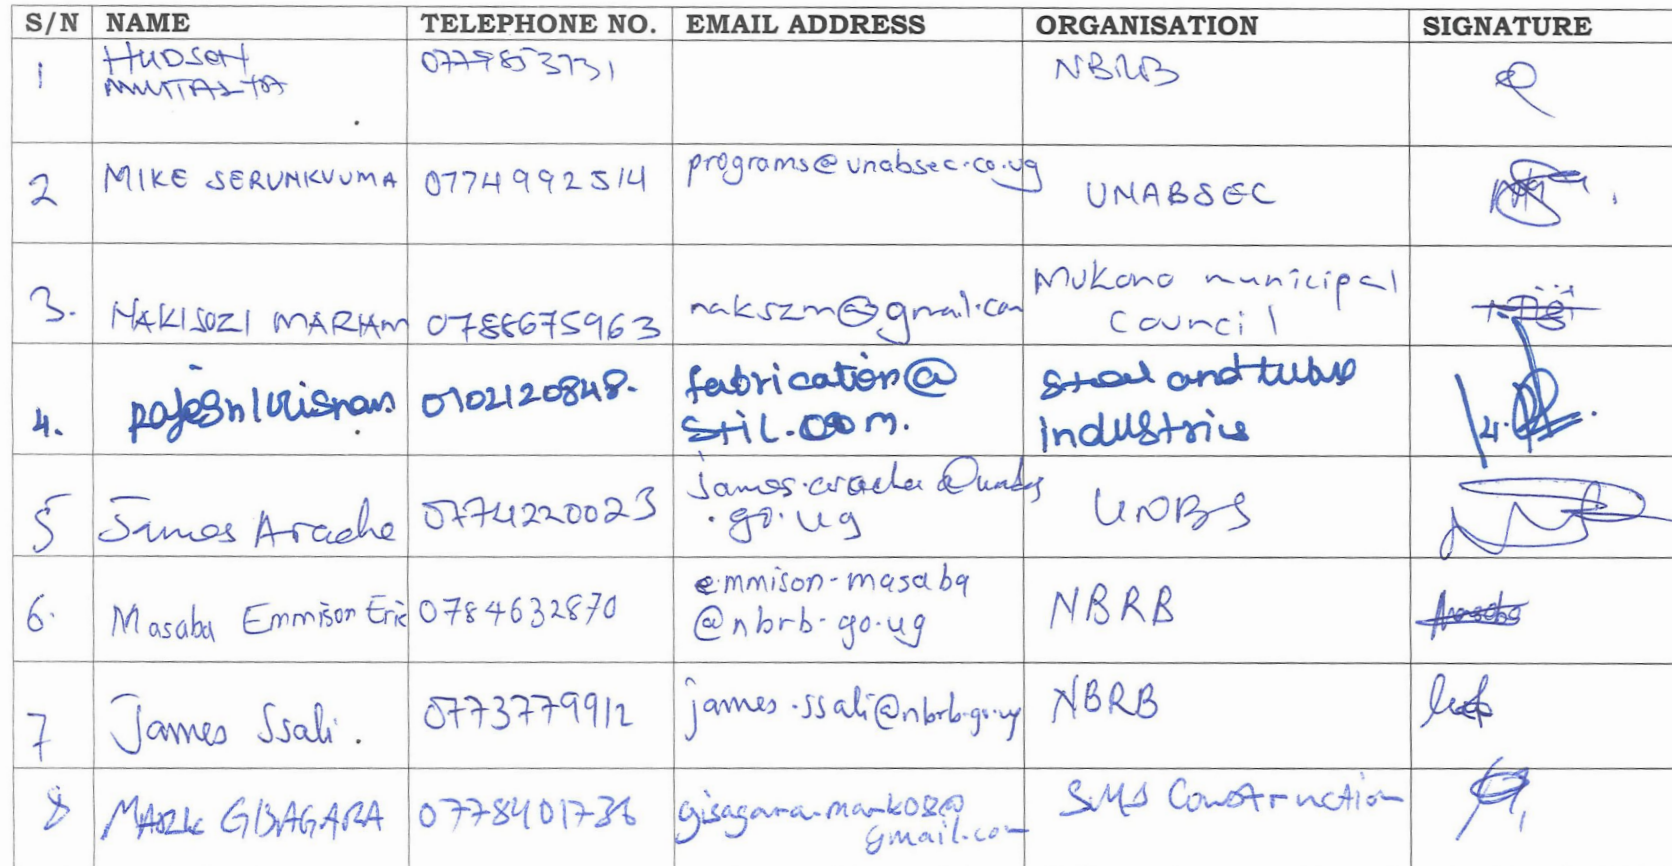 S/N NAME TELEPHONE NO. EMAIL ADDRESS ORGANISATION SIGNATURE
1 HUDSON 0779853731 NBRB
2 MIKE SERUNKUUMA 0774992514 programs@unabsec.co.ug UNABSEC
3. NAKISOZI MARIAM 0788675963 nakszm@gmail.com Mukono municipal
Council
4. Rajesh Krisnan 0702120848. fabrication@ Steel and tube
stil.com. industries
5 James Arache 0774220023 james.arache@unbs UNBS
.go.ug
6. Masaba Emmison Eric 0784632870 emmison-masaba NBRB
@nbrb-go.ug
7 James Ssali. 0773779912 james.ssali@nbrb.go.ug NBRB
8 MARK GISAGARA 0778401736 gisagara.mark08@ SMS Construction
gmail.com